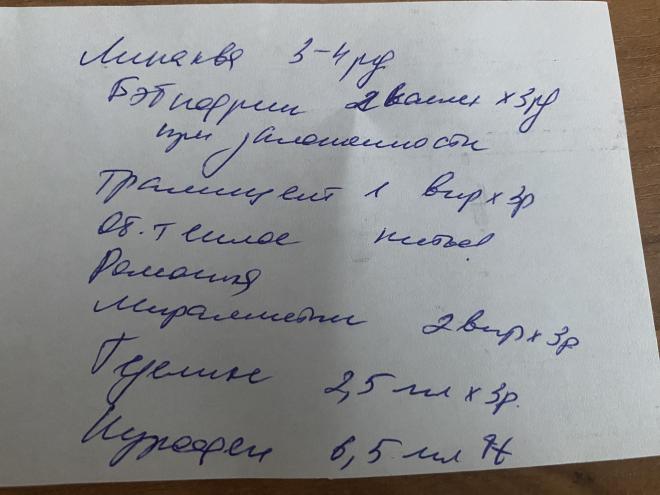 Линаква 3-4 рд
2 капли х 3рд
при заложенности
1 впр х 3р
Об. теплое питье
Ромашка
Мирамистин 2 впр х 3р
2,5 мл х 3р.
Нурофен 6,5 мл